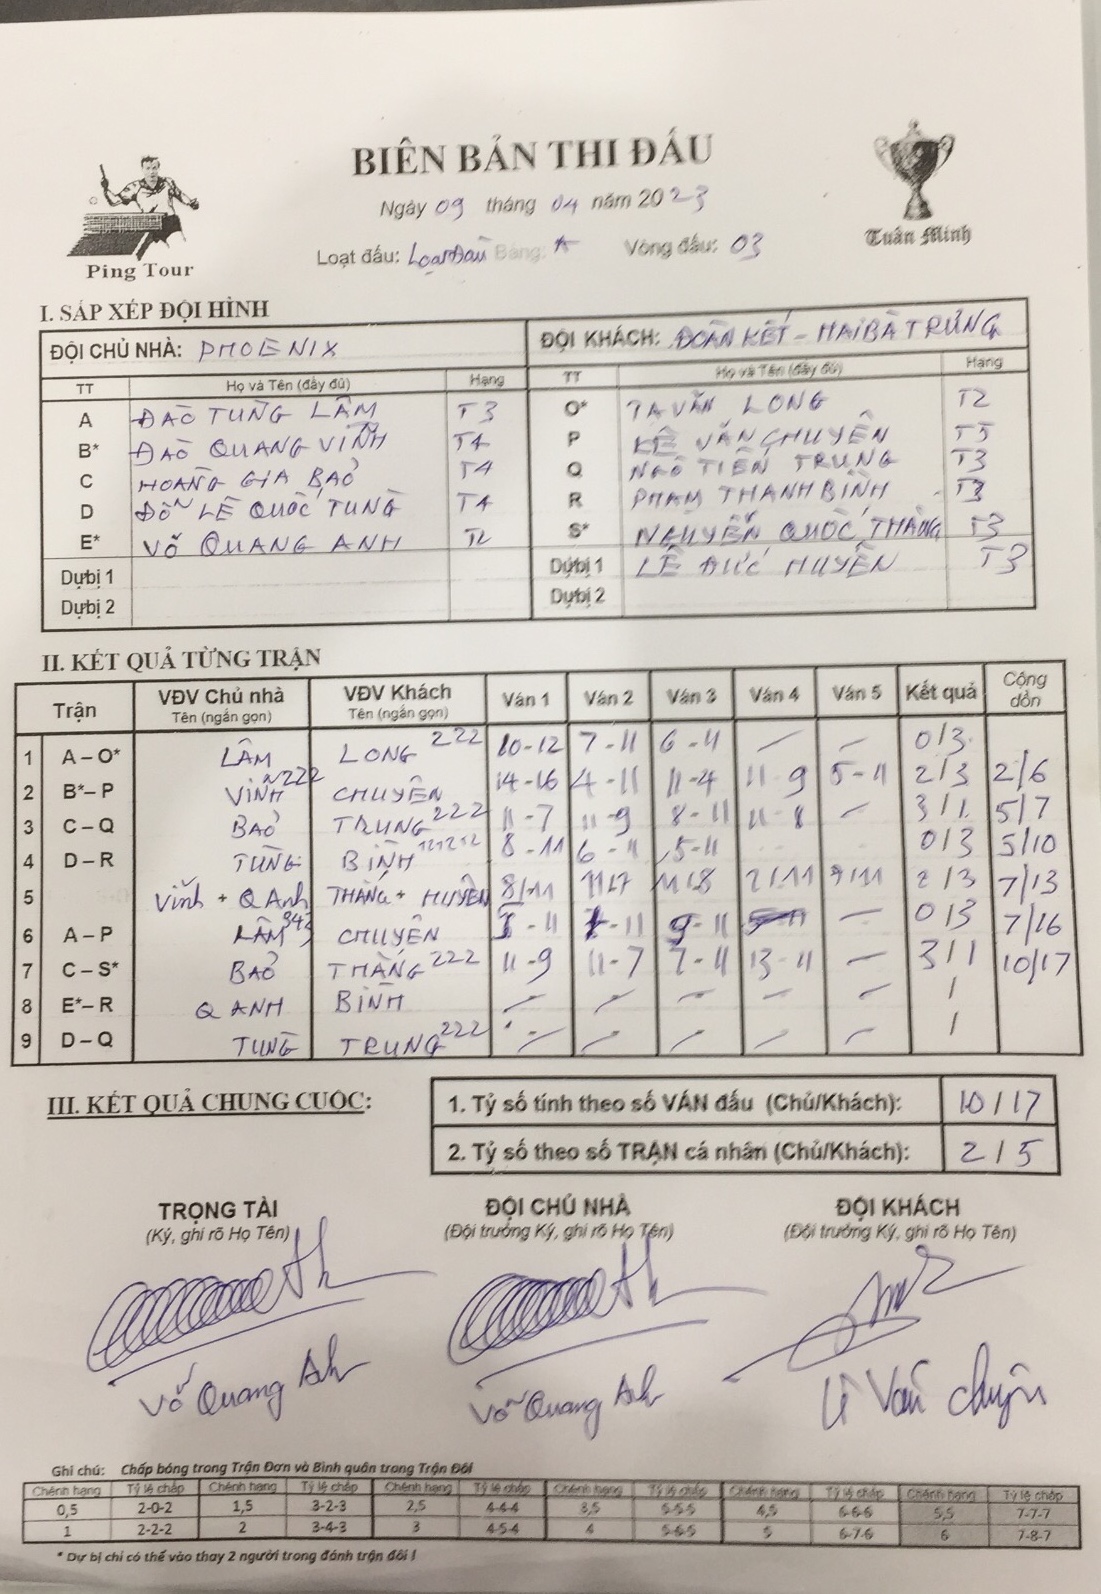 BIÊN BẢN THI ĐẤU
Ngày 09 tháng 04 năm 2023
Loạt đấu: Loạt Đấu Bảng: A Vòng đấu: 03
Ping Tour
Tuấn Minh
I. SẮP XẾP ĐỘI HÌNH
ĐỘI CHỦ NHÀ: PHOENIX ĐỘI KHÁCH: ĐOÀN KẾT - HAI BÀ TRƯNG
TT Họ và Tên (đầy đủ) Hạng TT Họ và Tên (đầy đủ) Hạng
A ĐÀO TÙNG LÂM T3 O* TẠ VĂN LONG T2
B* ĐÀO QUANG VINH T4 P LÊ VĂN CHUYÊN T5
C HOÀNG GIA BẢO T4 Q NGÔ TIẾN TRUNG T3
D ĐỖ LÊ QUỐC TÙNG T4 R PHẠM THANH BÌNH T3
E* VÕ QUANG ANH T2 S* NGUYỄN QUỐC THẮNG T3
Dự bị 1 Dự bị 1 LÊ ĐỨC HUYÊN T3
Dự bị 2 Dự bị 2
II. KẾT QUẢ TỪNG TRẬN
Trận VĐV Chủ nhà Tên (ngắn gọn) VĐV Khách Tên (ngắn gọn) Ván 1 Ván 2 Ván 3 Ván 4 Ván 5 Kết quả Cộng dồn
1 A – O* LÂM LONG 222 10-12 7-11 6-11 – – 0/3
2 B* – P VINH 222 CHUYÊN 14-16 4-11 11-4 11-9 5-11 2/3 2/6
3 C – Q BẢO TRUNG 222 11-7 11-9 8-11 11-8 – 3/1 5/7
4 D – R TÙNG BÌNH 8-11 6-11 5-11 0/3 5/10
5 Vinh + Q Anh THẮNG + HUYÊN 8/11 11/7 11/8 2/11 9/11 2/3 7/13
6 A – P LÂM 343 CHUYÊN -11 -11 9-11 – 0/3 7/16
7 C – S* BẢO THẮNG 222 11-9 11-7 7-11 13-11 – 3/1 10/17
8 E* – R Q ANH BÌNH – – – – – /
9 D – Q TÙNG TRUNG 222 – – – – – /
III. KẾT QUẢ CHUNG CUỘC:
1. Tỷ số tính theo số VÁN đấu (Chủ/Khách): 10/17
2. Tỷ số theo số TRẬN cá nhân (Chủ/Khách): 2/5
TRỌNG TÀI ĐỘI CHỦ NHÀ ĐỘI KHÁCH
(Ký, ghi rõ Họ Tên) (Đội trưởng Ký, ghi rõ Họ Tên) (Đội trưởng Ký, ghi rõ Họ Tên)
Võ Quang Anh Võ Quang Anh Lê Văn Chuyên
Ghi chú: Chấp bóng trong Trận Đơn và Bình quân trong Trận Đôi
Chênh hạng Tỷ lệ chấp Chênh hạng Tỷ lệ chấp Chênh hạng Tỷ lệ chấp Chênh hạng Tỷ lệ chấp Chênh hạng Tỷ lệ chấp Chênh hạng Tỷ lệ chấp
0,5 2-0-2 1,5 3-2-3 2,5 4-4-4 3,5 5-5-5 4,5 6-6-6 5,5 7-7-7
1 2-2-2 2 3-4-3 3 4-5-4 4 5-6-5 5 6-7-6 6 7-8-7
* Dự bị chỉ có thể vào thay 2 người trong đánh trận đôi !